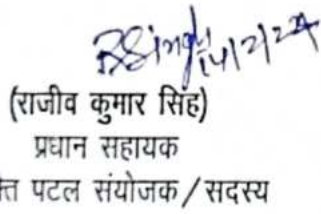 RSingh 14/2/24
(राजीव कुमार सिंह)
प्रधान सहायक
पटल संयोजक/सदस्य